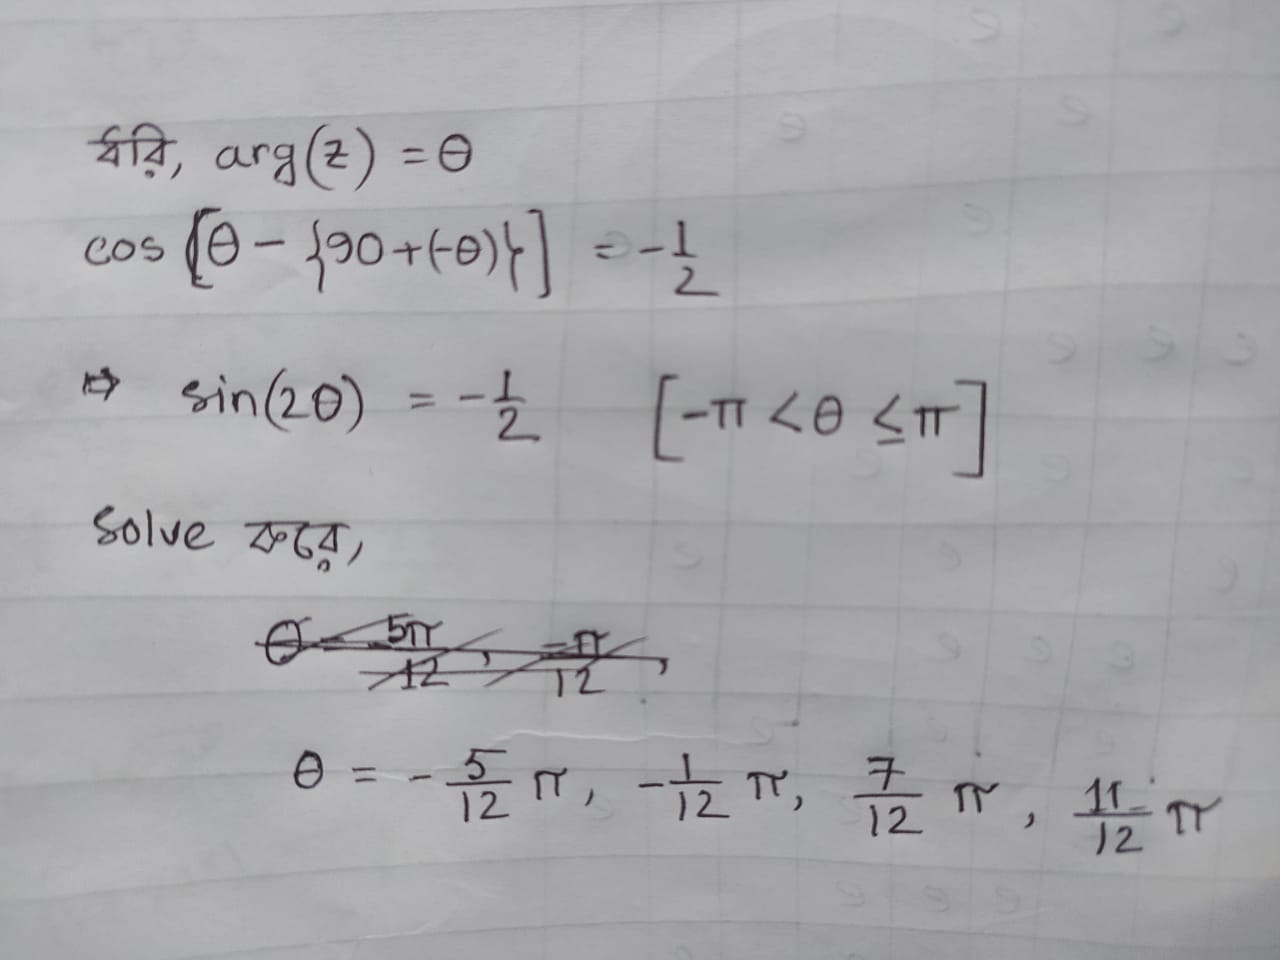 ধরি, arg(z) = θ
cos [θ - {90+(-θ)}] = -1/2
⇒ sin(2θ) = -1/2 [-π < θ ≤ π]
Solve করে,
θ = 5π/12, -π/12,
θ = -5/12 π, -1/12 π, 7/12 π, 11/12 π